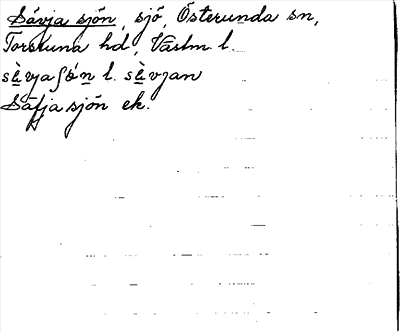 Sävja sjön, sjö, Österunda sn,
Torstuna hd, Västm. l.
sὲvjaʃớn l. sὲvjan
Säfja sjön ek.